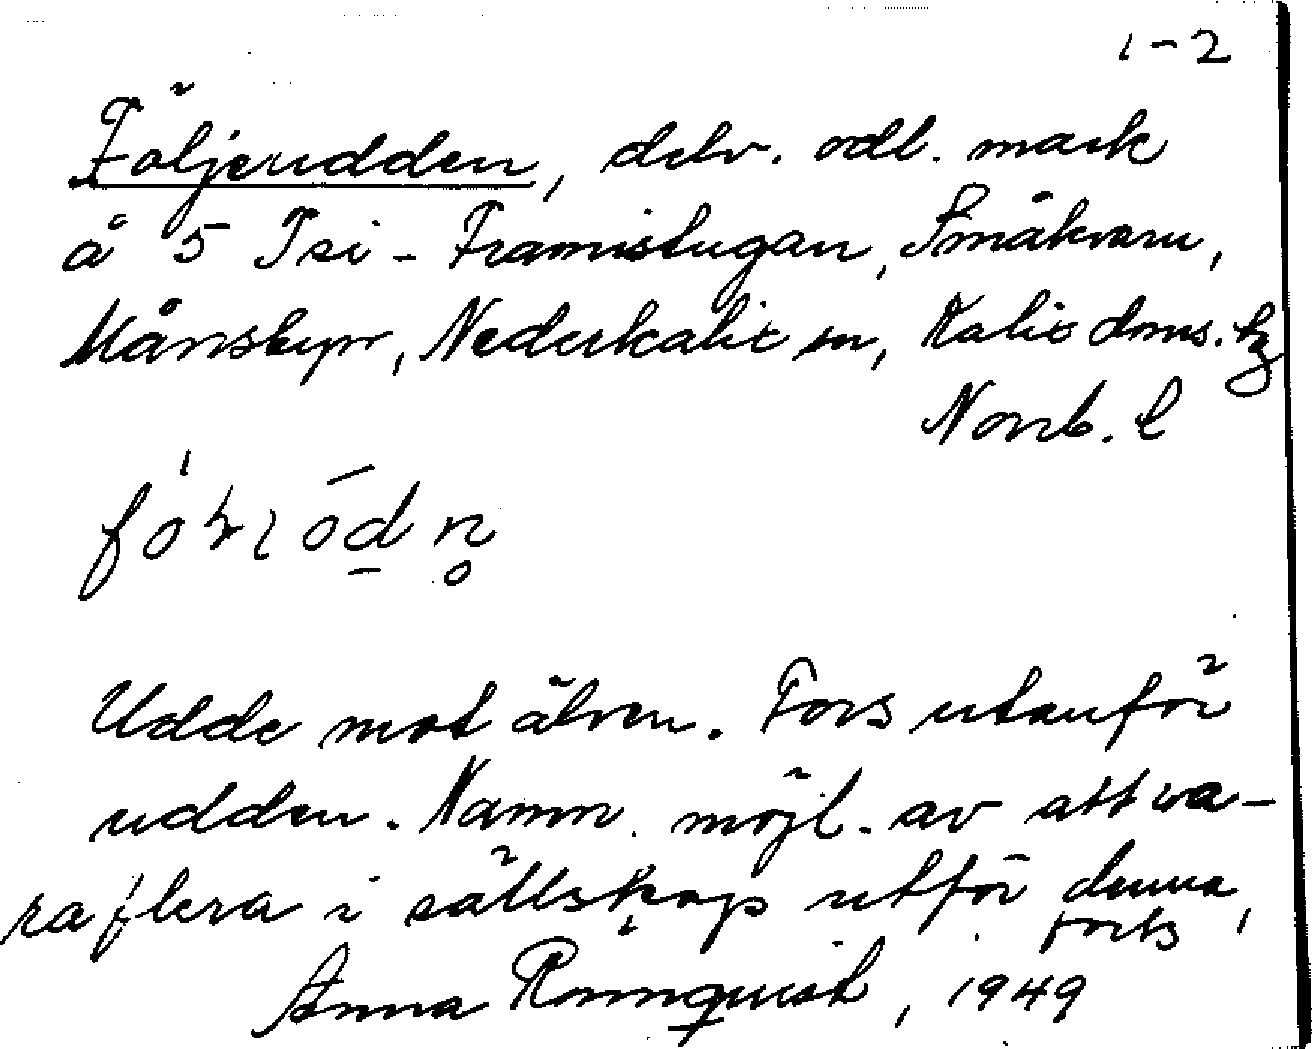 1-2
Följeudden, delv. odl. mark
å 5 Tri-Framistugan, Småkvarn,
Månsbyn, Nederkalix sn, Kalix doms. hg
Norrb. l
Udde mot älven. Fors utanför
udden. Namn. möjl. av att va-
ra flera i sällskap utför denna,
forts
Anna Rönnquist, 1949